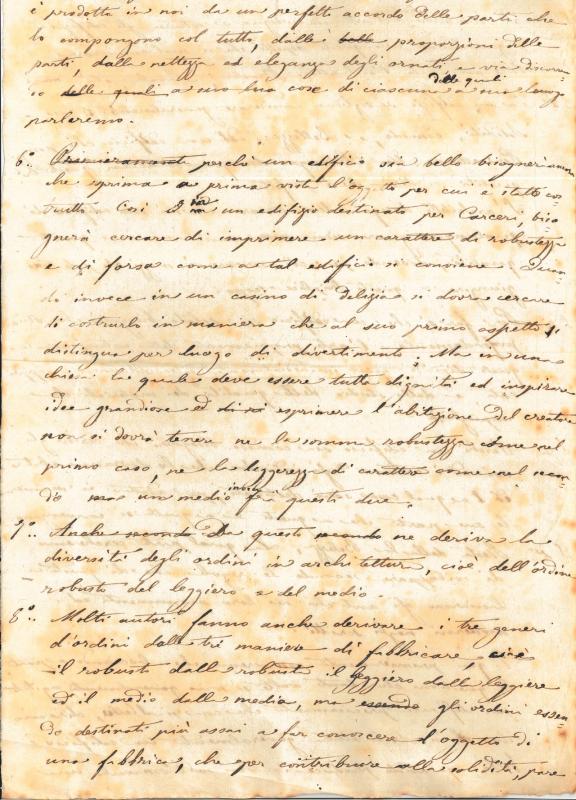 è prodotta in noi da un perfetto accordo delle parti che
lo compongono col tutto, dalle belle proporzioni delle
parti, dalla nettezza ed eleganza degli ornati, e via discorren
do delle quali delle quali a suo luo cose di ciascuna a suo luogo
parleremo.
6.° Primieramente perchè un edificio sia bello bisogneri
che esprima a prima vista l'oggetto per cui è stato cos
trutto Così in un edifizio destinato per Carceri biso
gnerà cercare di imprimere un carattere di robustezza
e di forza come a tal edificio si conviene Quan
do invece in un casino di delizia si dovrà cercare
di costruirlo in maniera che al suo primo aspetto si
distingua per luogo di divertimento; Ma in una
chiesa la quale deve essere tutta dignità ed inspirare
idee grandiose ed esprimere l'abitazione del creatore
non si dovrà tenere ne la somma robustezza come nel
primo caso, ne la leggerezza di carattere come nel secon
do ma un medio infra questi due.
7.° Anche secondo Da questo secondo ne deriva la
diversità degli ordini in architettura, cioè dell'ordine
robusto del leggiero e del medio.
8.° Molti autori fanno anche derivare i tre generi
d'ordini dalle tre maniere di fabbricare, cioè
il robusto dalla robusta il leggiero dalla leggiera
ed il medio dalla media, ma essendo gli ordini essen
do destinati più assai a far conoscere l'oggetto di
una fabbrica, che per contribuire alla solidità, pare